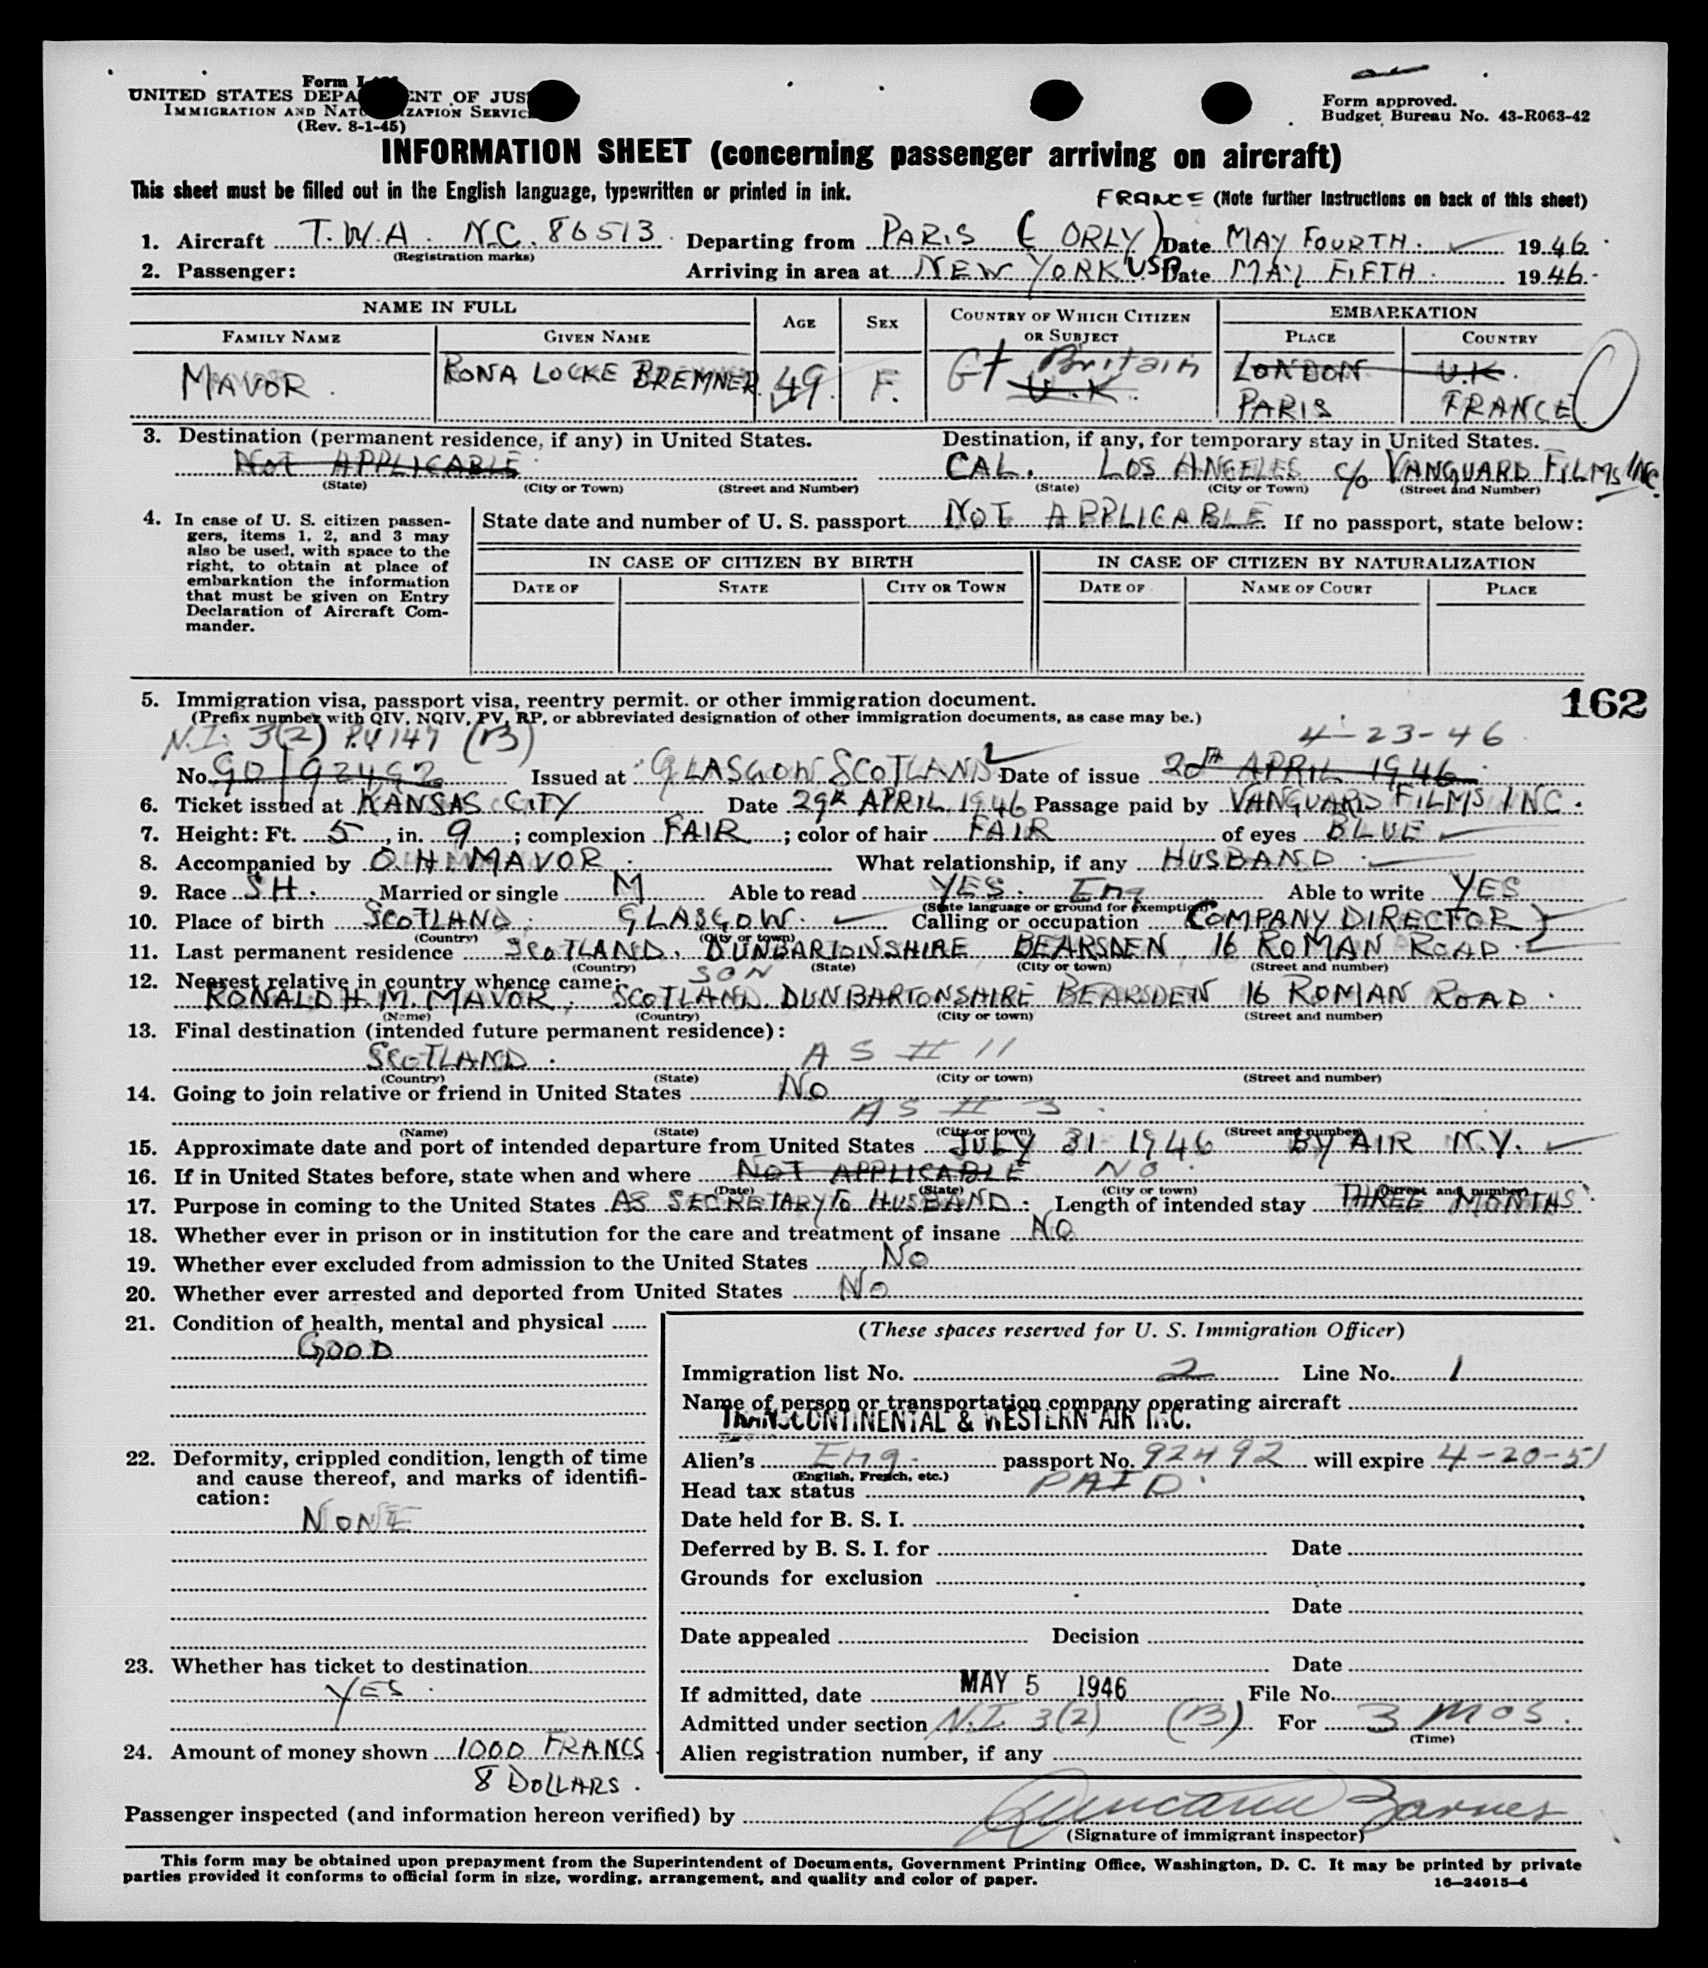 Form I
UNITED STATES DEPA ENT OF JUS
IMMIGRATION AND NATU IZATION SERVIC
(Rev. 8-1-45)
Form approved.
Budget Bureau No. 43-R063-42
INFORMATION SHEET (concerning passenger arriving on aircraft)
This sheet must be filled out in the English language, typewritten or printed in ink.
FRANCE (Note further instructions on back of this sheet)
1. Aircraft T.W.A. N.C. 86513 Departing from PARIS (ORLY) Date MAY FOURTH. 1946.
(Registration marks)
2. Passenger: Arriving in area at NEW YORK USA Date MAY FIFTH. 1946.
NAME IN FULL AGE SEX COUNTRY OF WHICH CITIZEN OR SUBJECT EMBARKATION
FAMILY NAME GIVEN NAME PLACE COUNTRY
MAVOR. RONA LOCKE BREMNER 49. F. Gt Britain U.K. LONDON U.K.
PARIS FRANCE
3. Destination (permanent residence, if any) in United States. Destination, if any, for temporary stay in United States.
NOT APPLICABLE CAL. LOS ANGELES c/o VANGUARD FILMS INC.
(State) (City or Town) (Street and Number) (State) (City or Town) (Street and Number)
4. In case of U. S. citizen passen-
gers, items 1, 2, and 3 may
also be used, with space to the
right, to obtain at place of
embarkation the information
that must be given on Entry
Declaration of Aircraft Com-
mander.
State date and number of U. S. passport NOT APPLICABLE. If no passport, state below:
IN CASE OF CITIZEN BY BIRTH IN CASE OF CITIZEN BY NATURALIZATION
DATE OF STATE CITY OR TOWN DATE OF NAME OF COURT PLACE
5. Immigration visa, passport visa, reentry permit. or other immigration document.
162
(Prefix number with QIV, NQIV, PV, RP, or abbreviated designation of other immigration documents, as case may be.)
N.I. 3(2) P.V 147 (B) 4-23-46
No. 92492 Issued at GLASGOW SCOTLAND Date of issue APRIL 1946
6. Ticket issued at KANSAS CITY Date 29th APRIL 1946 Passage paid by VANGUARD FILMS INC.
7. Height: Ft. 5, in. 9; complexion FAIR; color of hair FAIR of eyes BLUE
8. Accompanied by O.H. MAVOR. What relationship, if any HUSBAND.
9. Race SH. Married or single M Able to read YES. Eng Able to write YES
(State language or ground for exemption)
10. Place of birth SCOTLAND. GLASGOW. Calling or occupation COMPANY DIRECTOR
(Country) (City or town)
11. Last permanent residence SCOTLAND. DUNBARTONSHIRE BEARSDEN 16 ROMAN ROAD.
(Country) (State) (City or town) (Street and number)
12. Nearest relative in country whence came: SON
RONALD H. M. MAVOR, SCOTLAND. DUNBARTONSHIRE BEARSDEN 16 ROMAN ROAD.
(Name) (Country) (City or town) (Street and number)
13. Final destination (intended future permanent residence):
SCOTLAND. AS # 11
(Country) (State) (City or town) (Street and number)
14. Going to join relative or friend in United States NO
AS # 3.
(Name) (State) (City or town) (Street and number)
15. Approximate date and port of intended departure from United States JULY 31 1946 BY AIR N.Y.
16. If in United States before, state when and where NOT APPLICABLE NO.
(Date) (State) (City or town) (Street and number)
17. Purpose in coming to the United States AS SECRETARY TO HUSBAND. Length of intended stay THREE MONTHS.
18. Whether ever in prison or in institution for the care and treatment of insane NO
19. Whether ever excluded from admission to the United States NO
20. Whether ever arrested and deported from United States NO
21. Condition of health, mental and physical
GOOD
22. Deformity, crippled condition, length of time
and cause thereof, and marks of identifi-
cation:
NONE
23. Whether has ticket to destination
YES.
24. Amount of money shown 1000 FRANCS
8 DOLLARS.
(These spaces reserved for U. S. Immigration Officer)
Immigration list No. 2 Line No. 1
Name of person or transportation company operating aircraft
TRANSCONTINENTAL & WESTERN AIR INC.
Alien's Eng. passport No. 92492 will expire 4-20-51
(English, French, etc.)
Head tax status PAID.
Date held for B. S. I.
Deferred by B. S. I. for Date
Grounds for exclusion
Date
Date appealed Decision
Date
If admitted, date MAY 5 1946 File No.
Admitted under section N.I. 3(2) (B) For 3 MOS.
(Time)
Alien registration number, if any
Passenger inspected (and information hereon verified) by
(Signature of immigrant inspector)
This form may be obtained upon prepayment from the Superintendent of Documents, Government Printing Office, Washington, D. C. It may be printed by private
parties provided it conforms to official form in size, wording, arrangement, and quality and color of paper.
16-24915-4